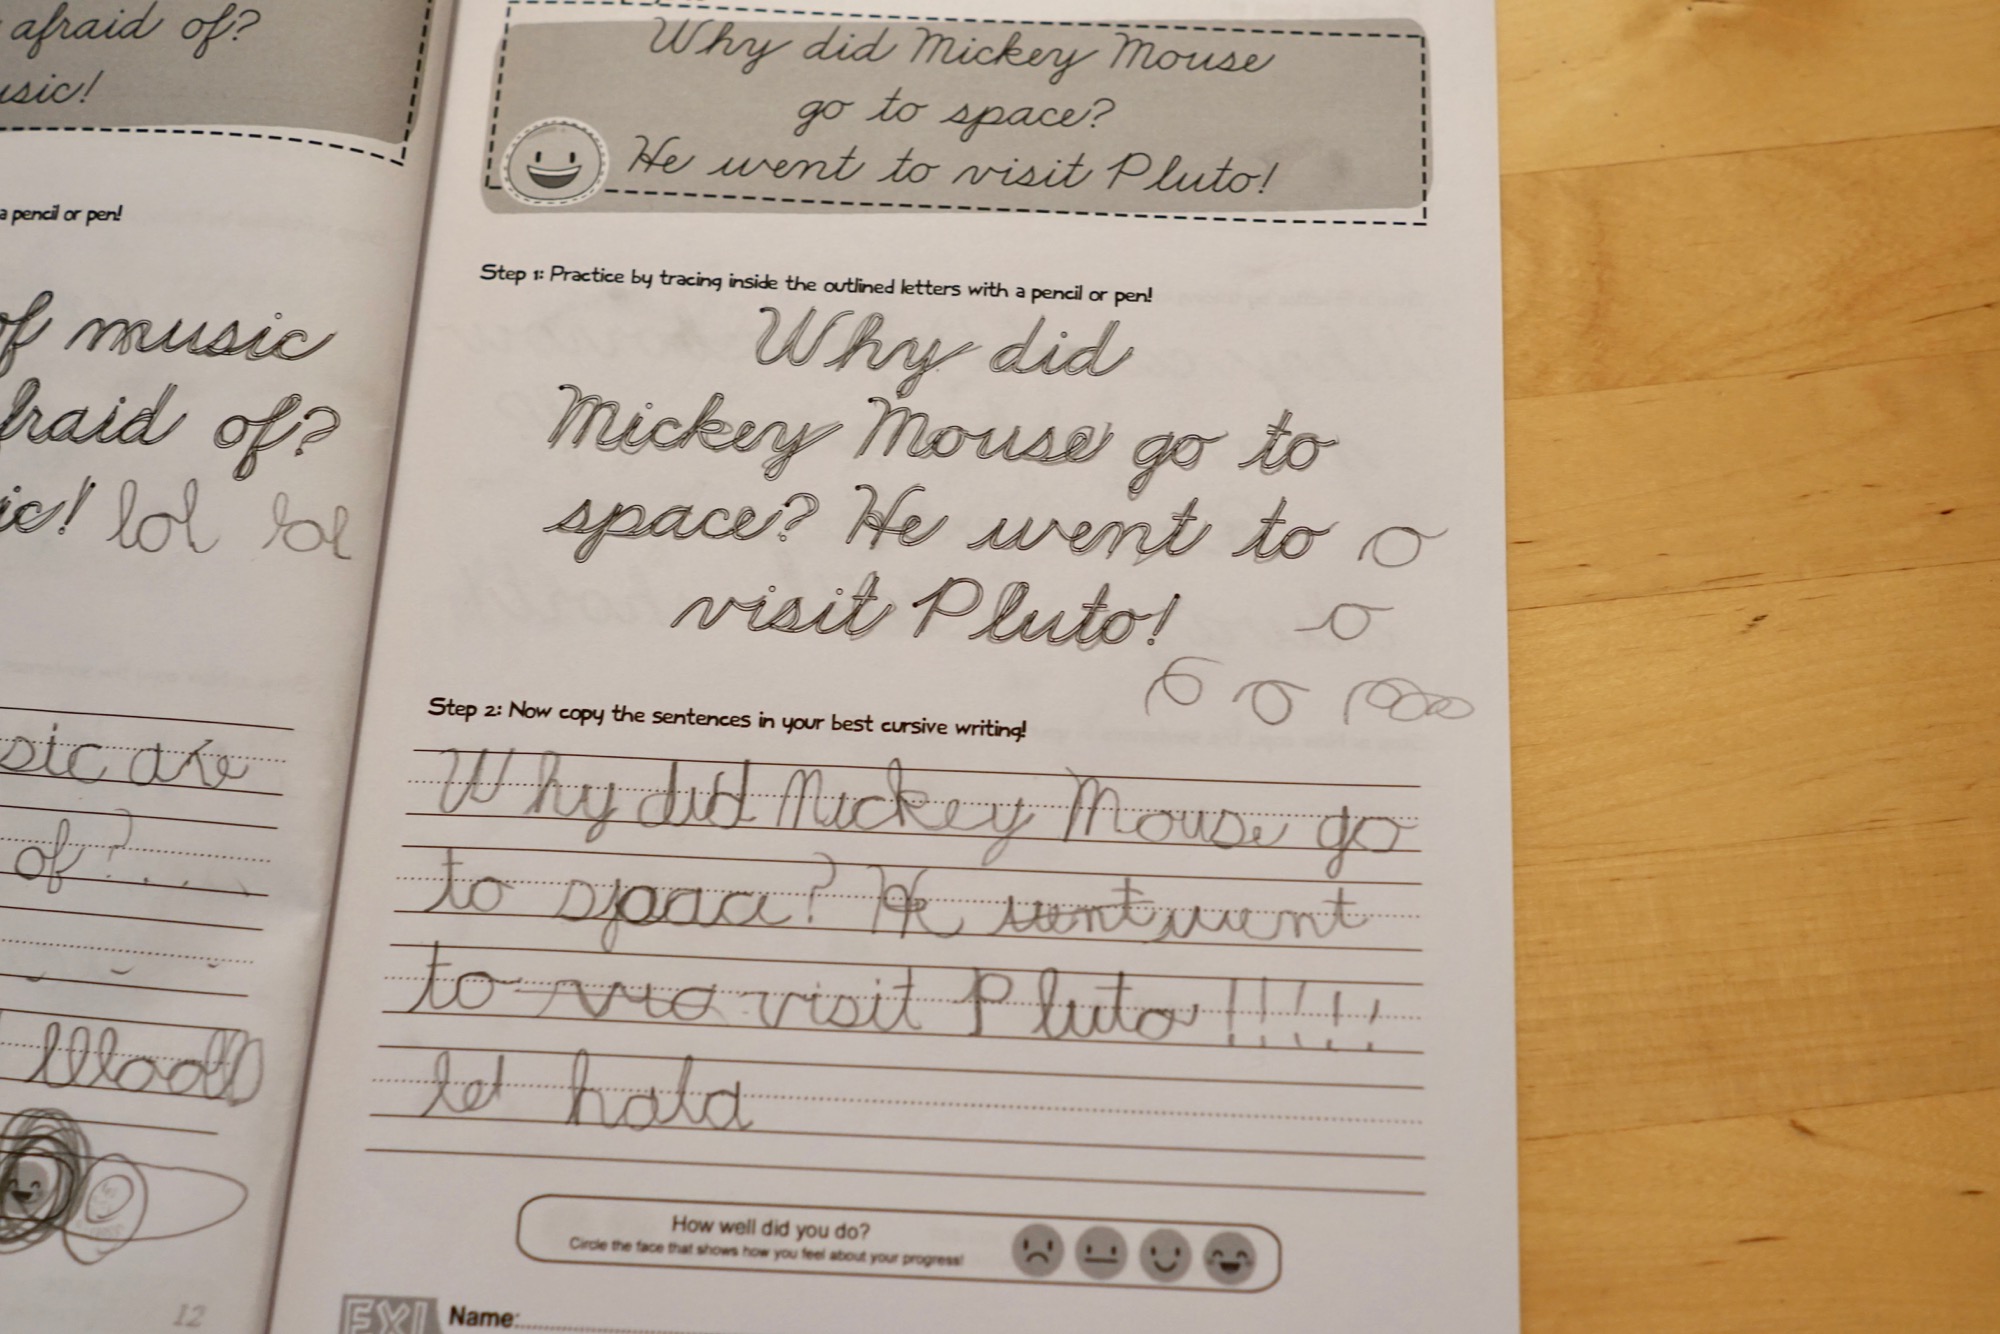 afraid of?
usic!
a pencil or pen!
of music
fraid of?
ic! lol lol
sic are
of?
12
Why did Mickey Mouse
go to space?
He went to visit Pluto!
Step 1: Practice by tracing inside the outlined letters with a pencil or pen!
Why did
Mickey Mouse go to
space? He went to o
visit Pluto! o
o o
Step 2: Now copy the sentences in your best cursive writing!
Why did Mickey Mouse go
to space? He went went
to visit Pluto!!!!!
How well did you do?
Circle the face that shows how you feel about your progress!
Name: